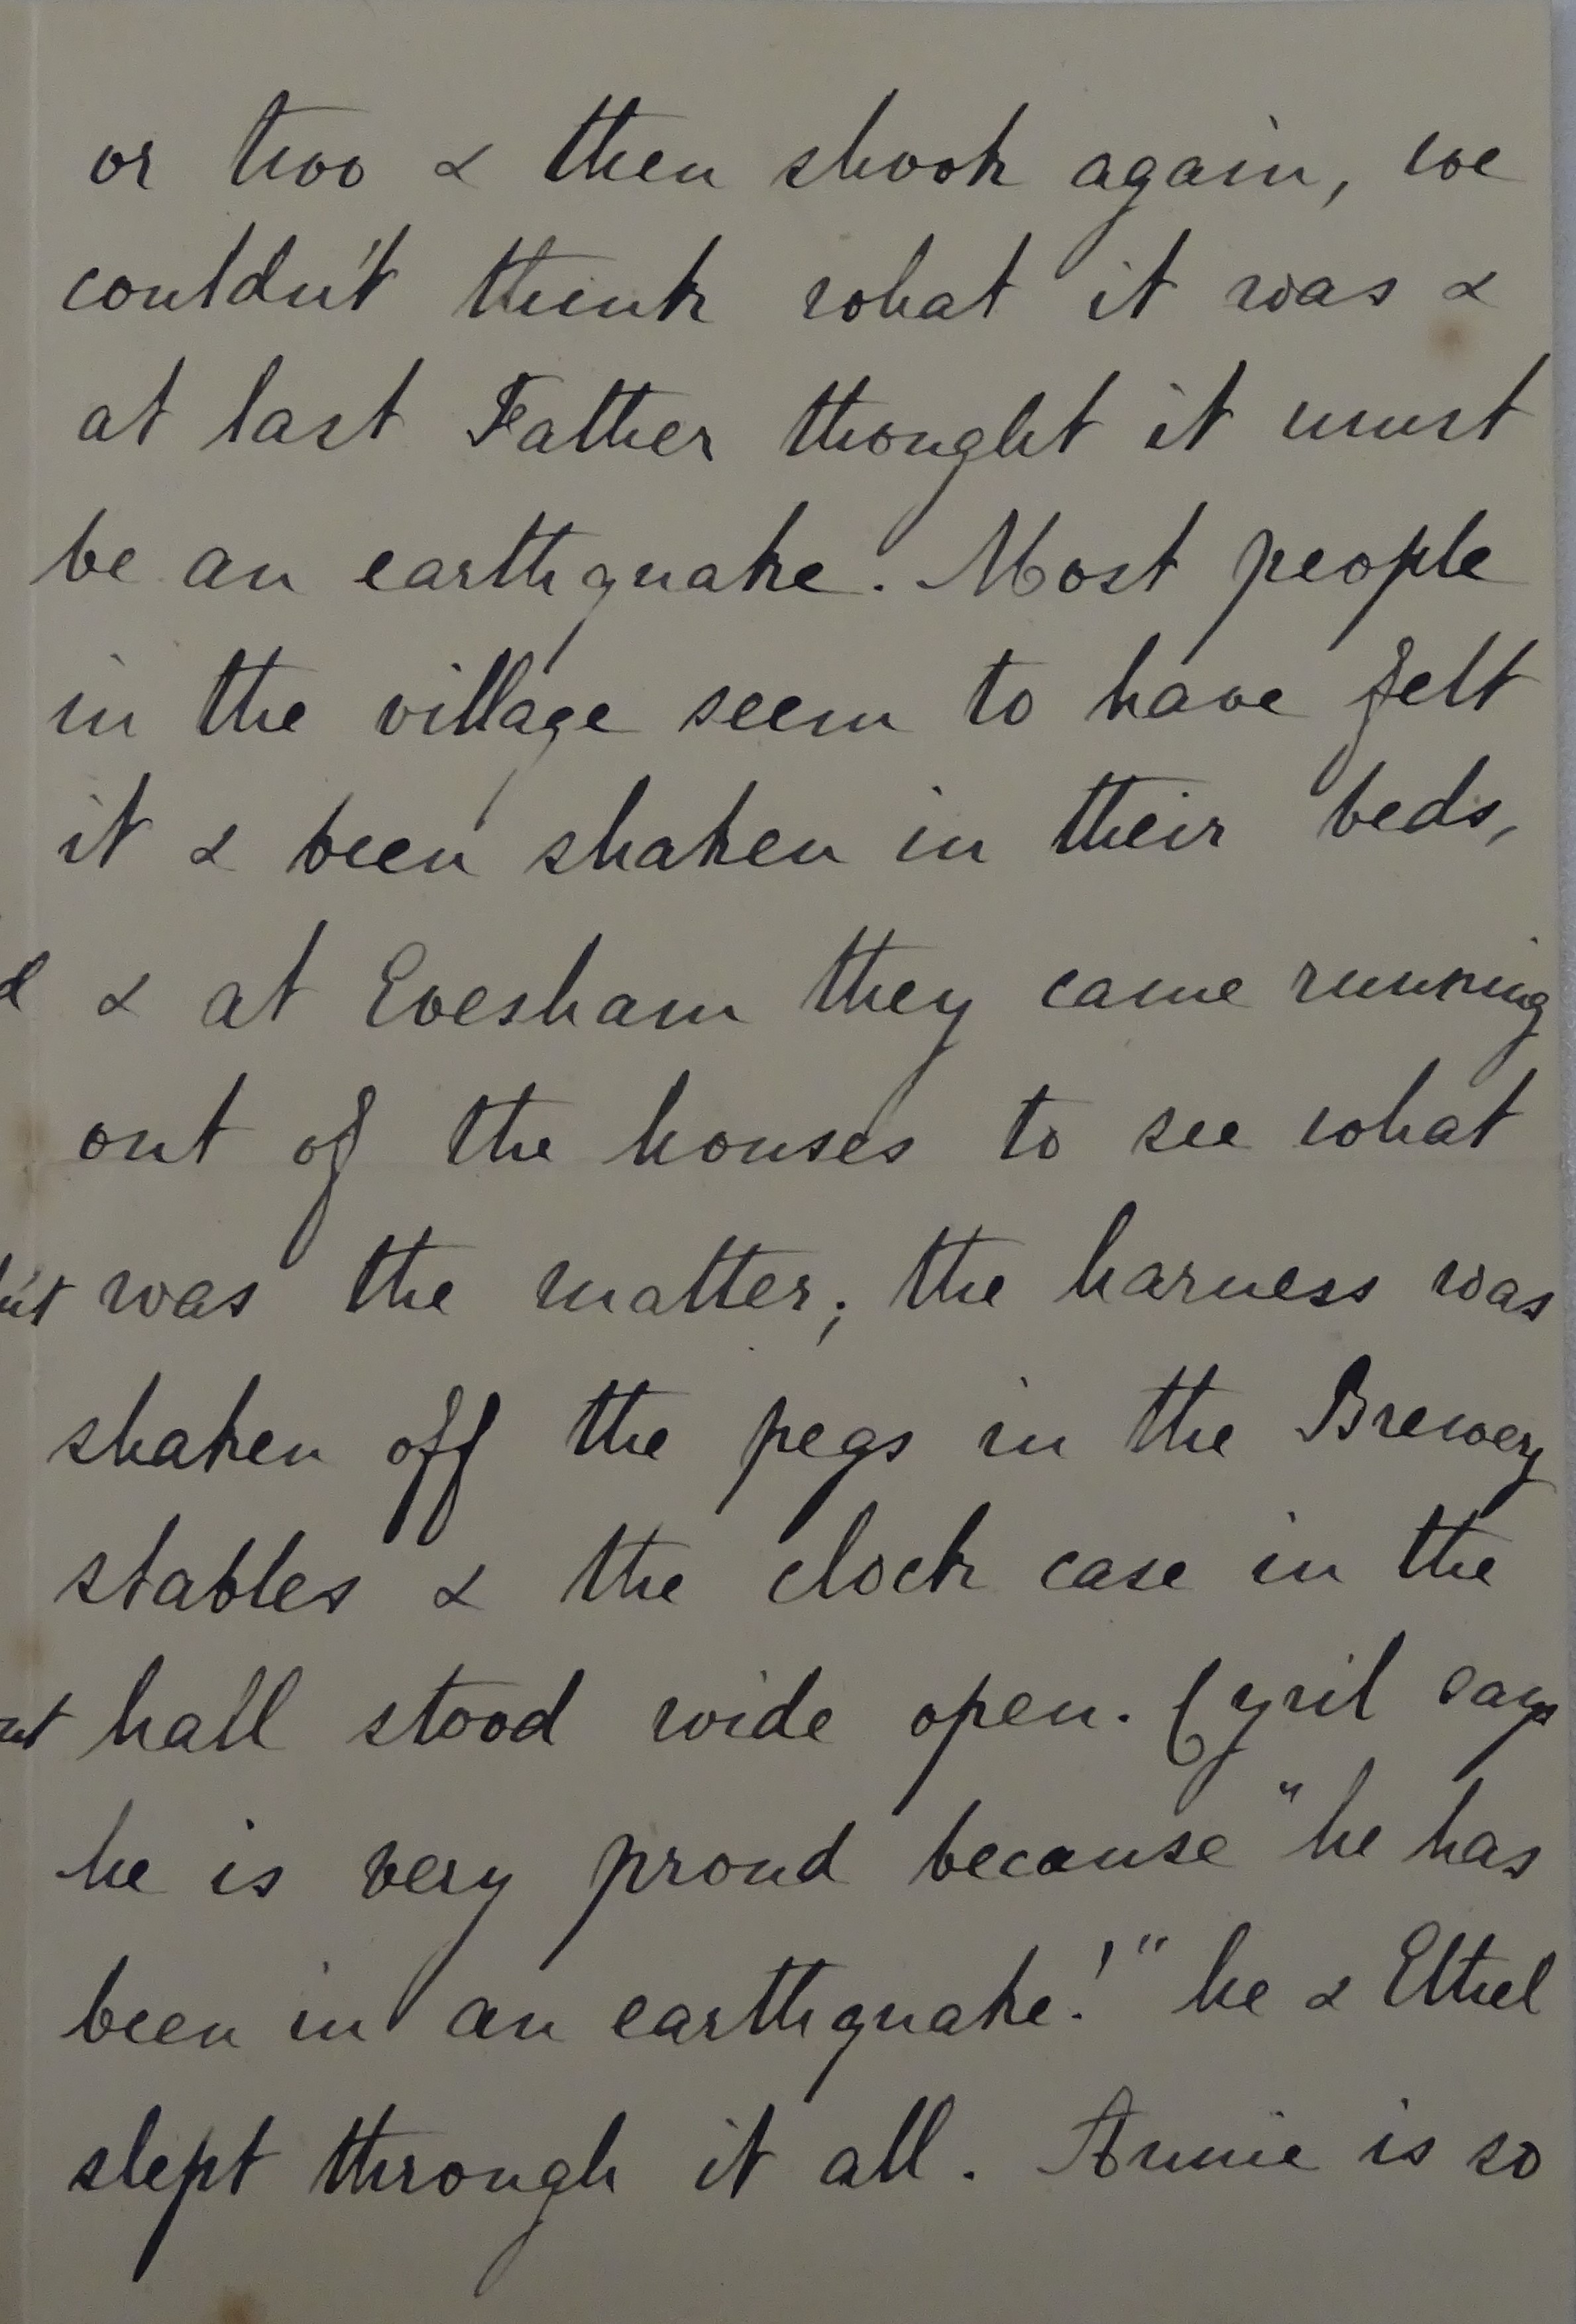 or two & then shook again, we
couldn't think what it was &
at last Father thought it must
be an earthquake. Most people
in the village seem to have felt
it & been shaken in their beds,
& at Evesham they came running
out of the houses to see what
was the matter; the harness was
shaken off the pegs in the Brewery
stables & the clock case in the
hall stood wide open. Cyril says
he is very proud because "he has
been in an earthquake!" he & Ethel
slept through it all. Annie is so